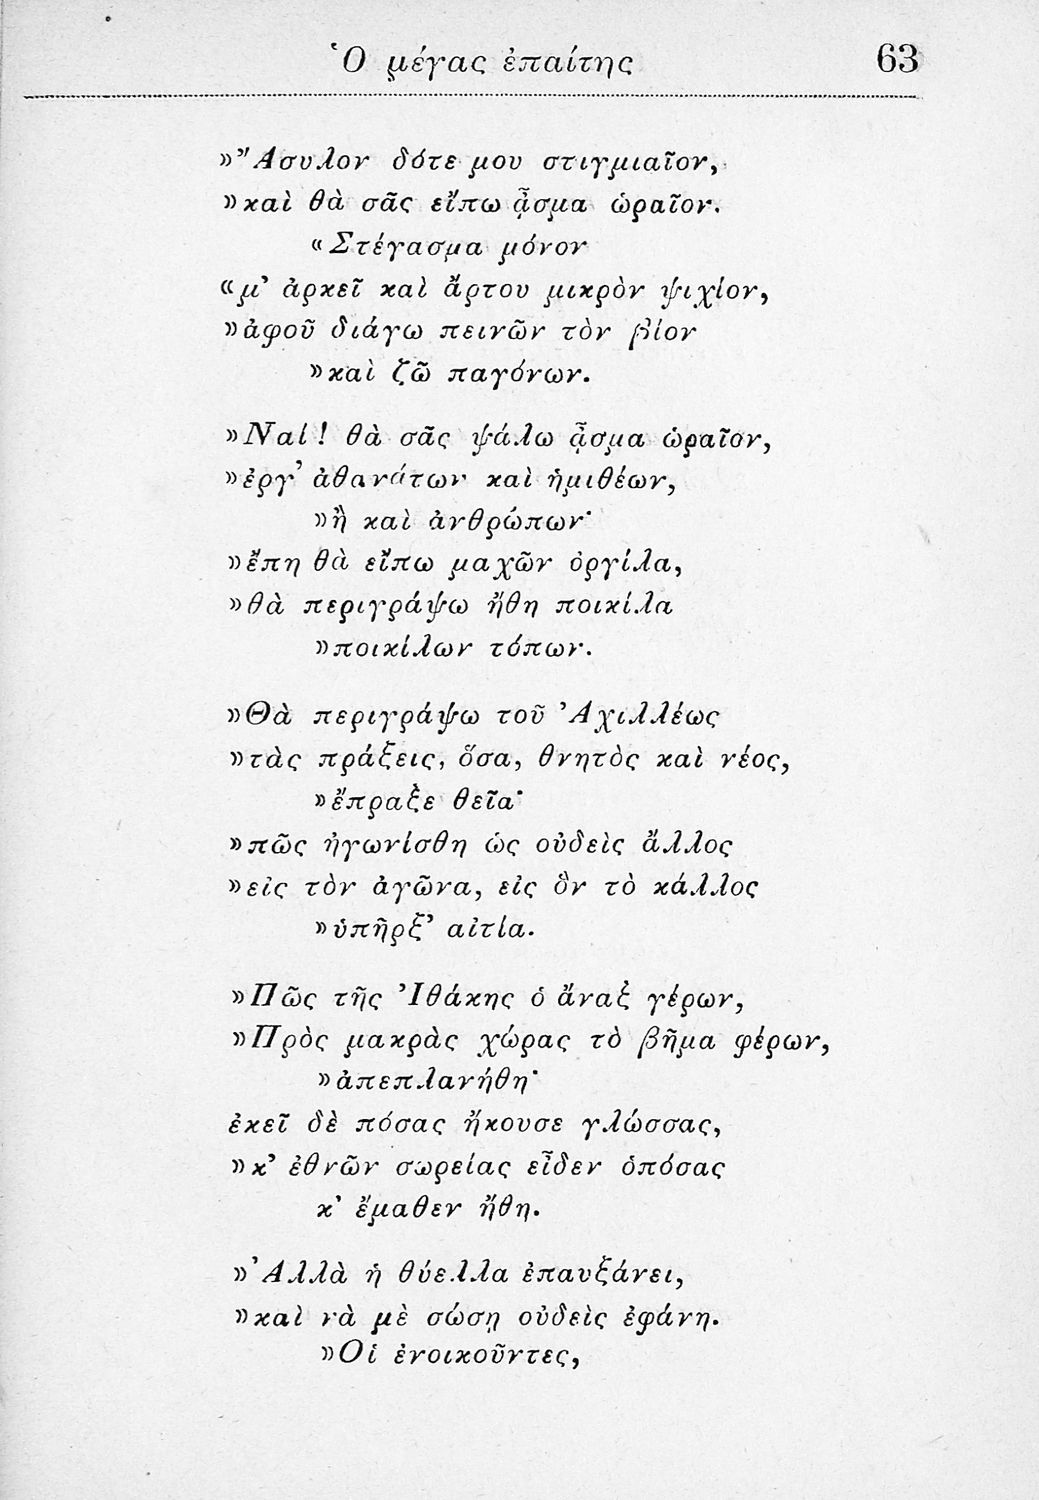 Ὁ μέγας ἐπαίτης 63
»Ἄσυλον δότε μου στιγμιαῖον,
»καὶ θὰ σᾶς εἴπω ᾆσμα ὡραῖον.
«Στέγασμα μόνον
«μ’ ἀρκεῖ καὶ ἄρτου μικρὸν ψιχίον,
»ἀφοῦ διάγω πεινῶν τὸν βίον
»καὶ ζῶ παγόνων.
»Ναί! θὰ σᾶς ψάλω ᾆσμα ὡραῖον,
»ἐργ’ ἀθανάτων καὶ ἡμιθέων,
»ἢ καὶ ἀνθρώπων·
»ἔπη θὰ εἴπω μαχῶν ὀργίλα,
»θὰ περιγράψω ἤθη ποικίλα
»ποικίλων τόπων.
»Θὰ περιγράψω τοῦ Ἀχιλλέως
»τὰς πράξεις, ὅσα, θνητὸς καὶ νέος,
»ἔπραξε θεῖα·
»πῶς ἠγωνίσθη ὡς οὐδεὶς ἄλλος
»εἰς τὸν ἀγῶνα, εἰς ὃν τὸ κάλλος
»ὑπῆρξ’ αἰτία.
»Πῶς τῆς Ἰθάκης ὁ ἄναξ γέρων,
»Πρὸς μακρὰς χώρας τὸ βῆμα φέρων,
»ἀπεπλανήθη·
ἐκεῖ δὲ πόσας ἤκουσε γλώσσας,
»κ’ ἐθνῶν σωρείας εἶδεν ὁπόσας
κ’ ἔμαθεν ἤθη.
»Ἀλλὰ ἡ θύελλα ἐπαυξάνει,
»καὶ νὰ μὲ σώσῃ οὐδεὶς ἐφάνη.
»Οἱ ἐνοικοῦντες,